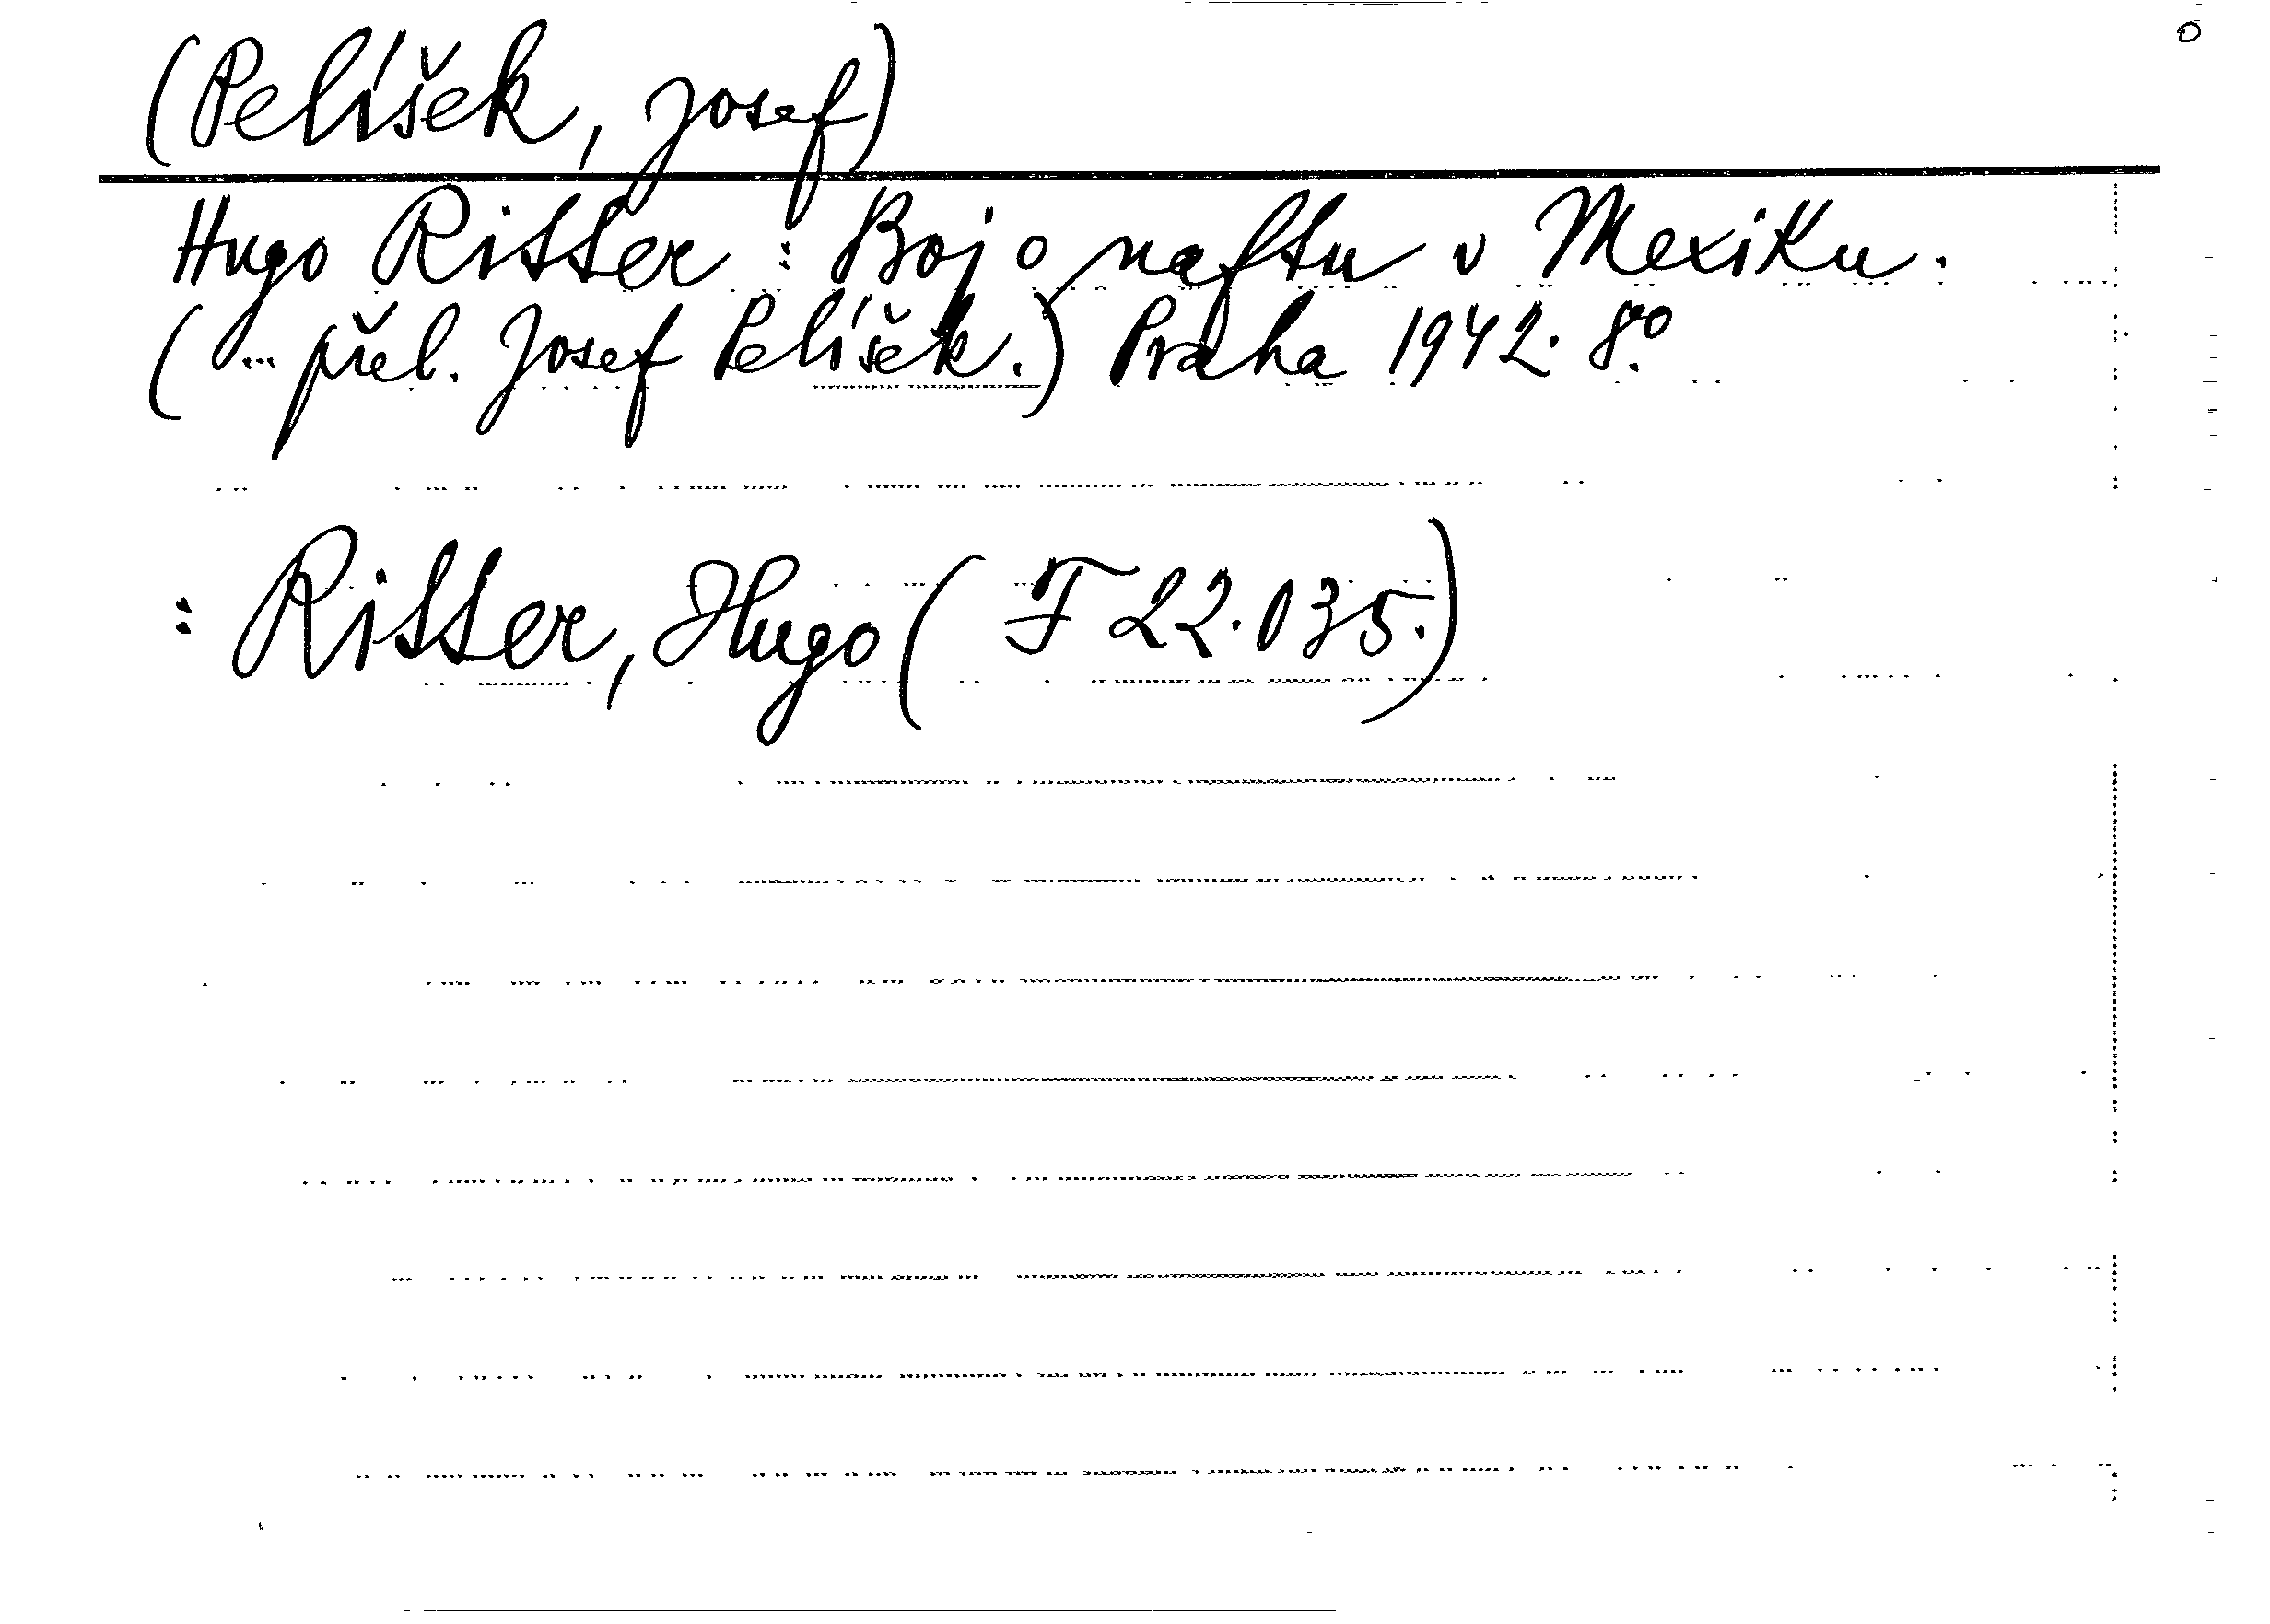 (Pelíšek, Josef)
Hugo Ritter: Boj o naftu v Mexiku.
(... přel. Josef Pelíšek.) Praha 1942. 8.°
: Ritter, Hugo (F 22.035.)